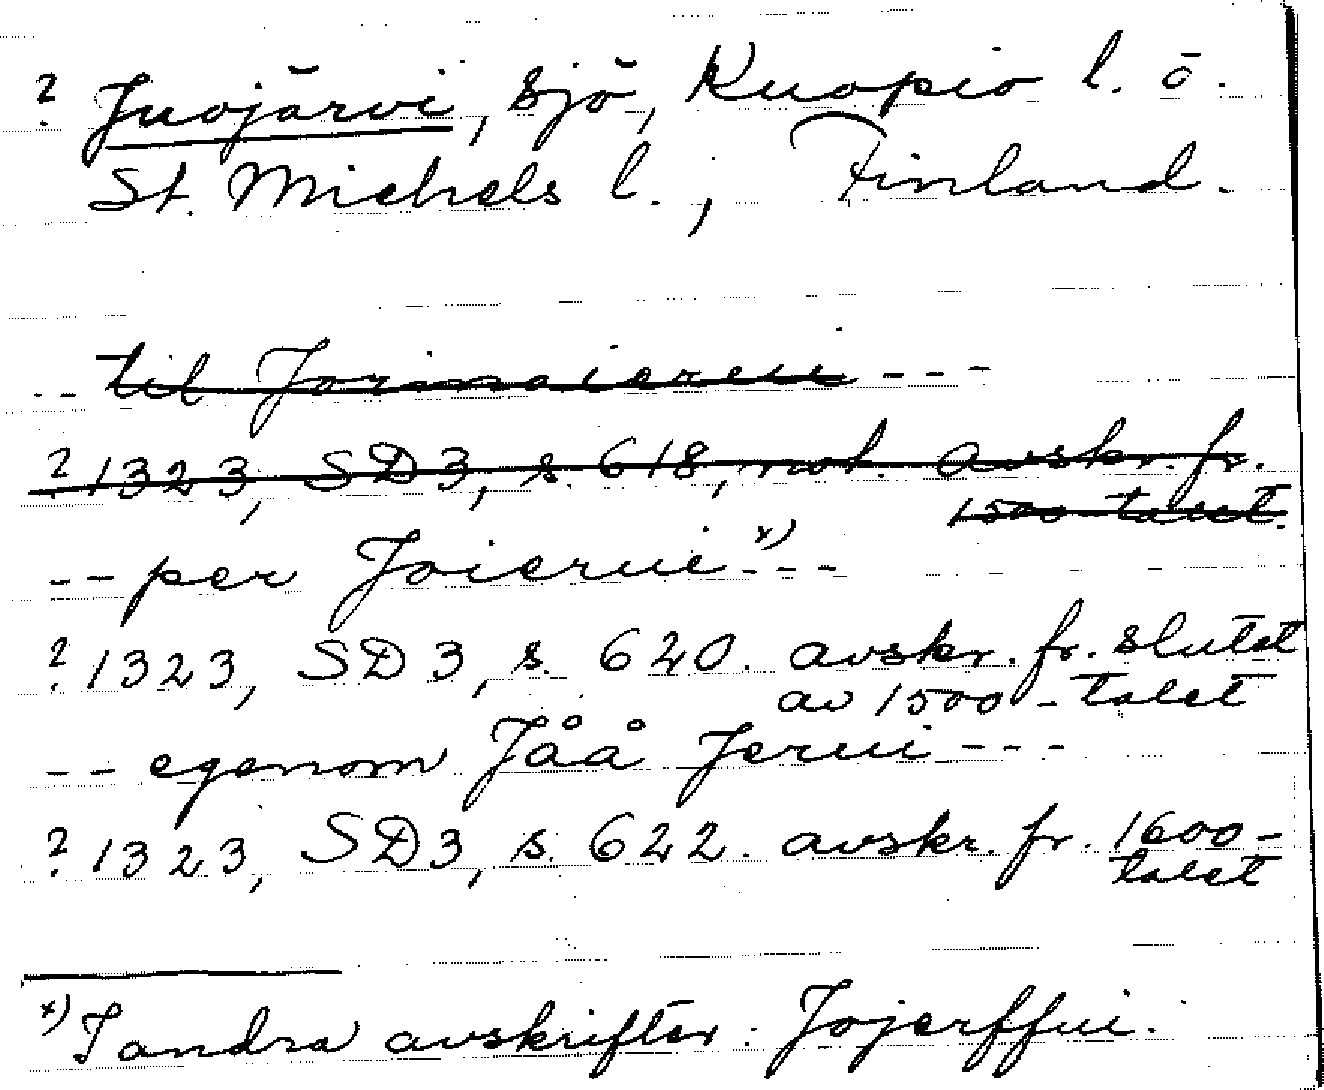 ? Juojärvi, sjö, Kuopio l. o.
St. Michels l., Finland.
-- til Jormaierui ---
? 1323, SD3, s. 618, not. avskr. fr.
1500-talet.
-- per Joierui x) ---
? 1323, SD3, s. 620. avskr. fr. slutet
av 1500-talet
-- egenom Jåå Jerui ---
? 1323, SD3, s. 622. avskr. fr. 1600-
talet
x) I andra avskrifter: Jojerffui.